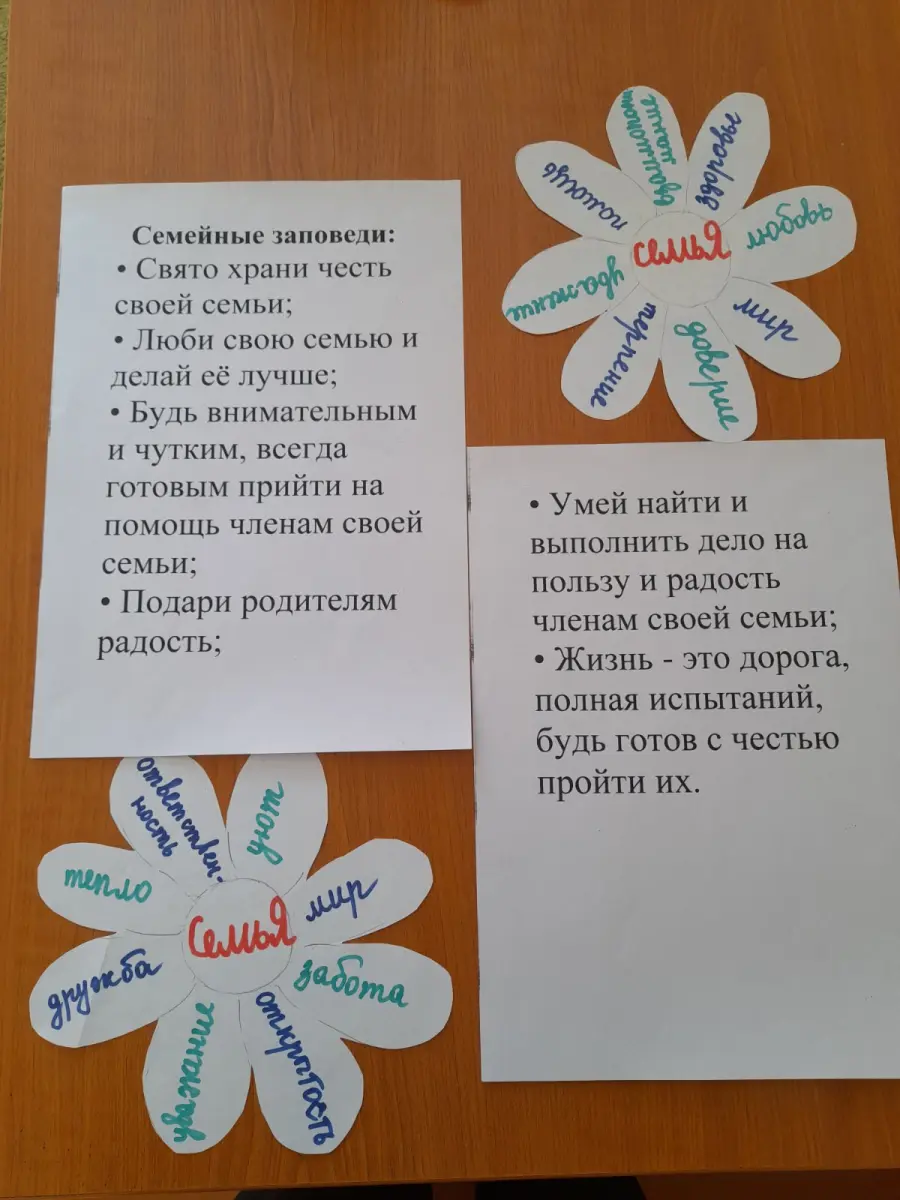 Семейные заповеди:
• Свято храни честь
своей семьи;
• Люби свою семью и
делай её лучше;
• Будь внимательным
и чутким, всегда
готовым прийти на
помощь членам своей
семьи;
• Подари родителям
радость;
семьЯ
здоровье
любовь
мир
доверие
терпение
уважение
помощь
• Умей найти и
выполнить дело на
пользу и радость
членам своей семьи;
• Жизнь - это дорога,
полная испытаний,
будь готов с честью
пройти их.
СемьЯ
ответствен-
ность
уют
мир
забота
открытость
уважание
дружба
тепло